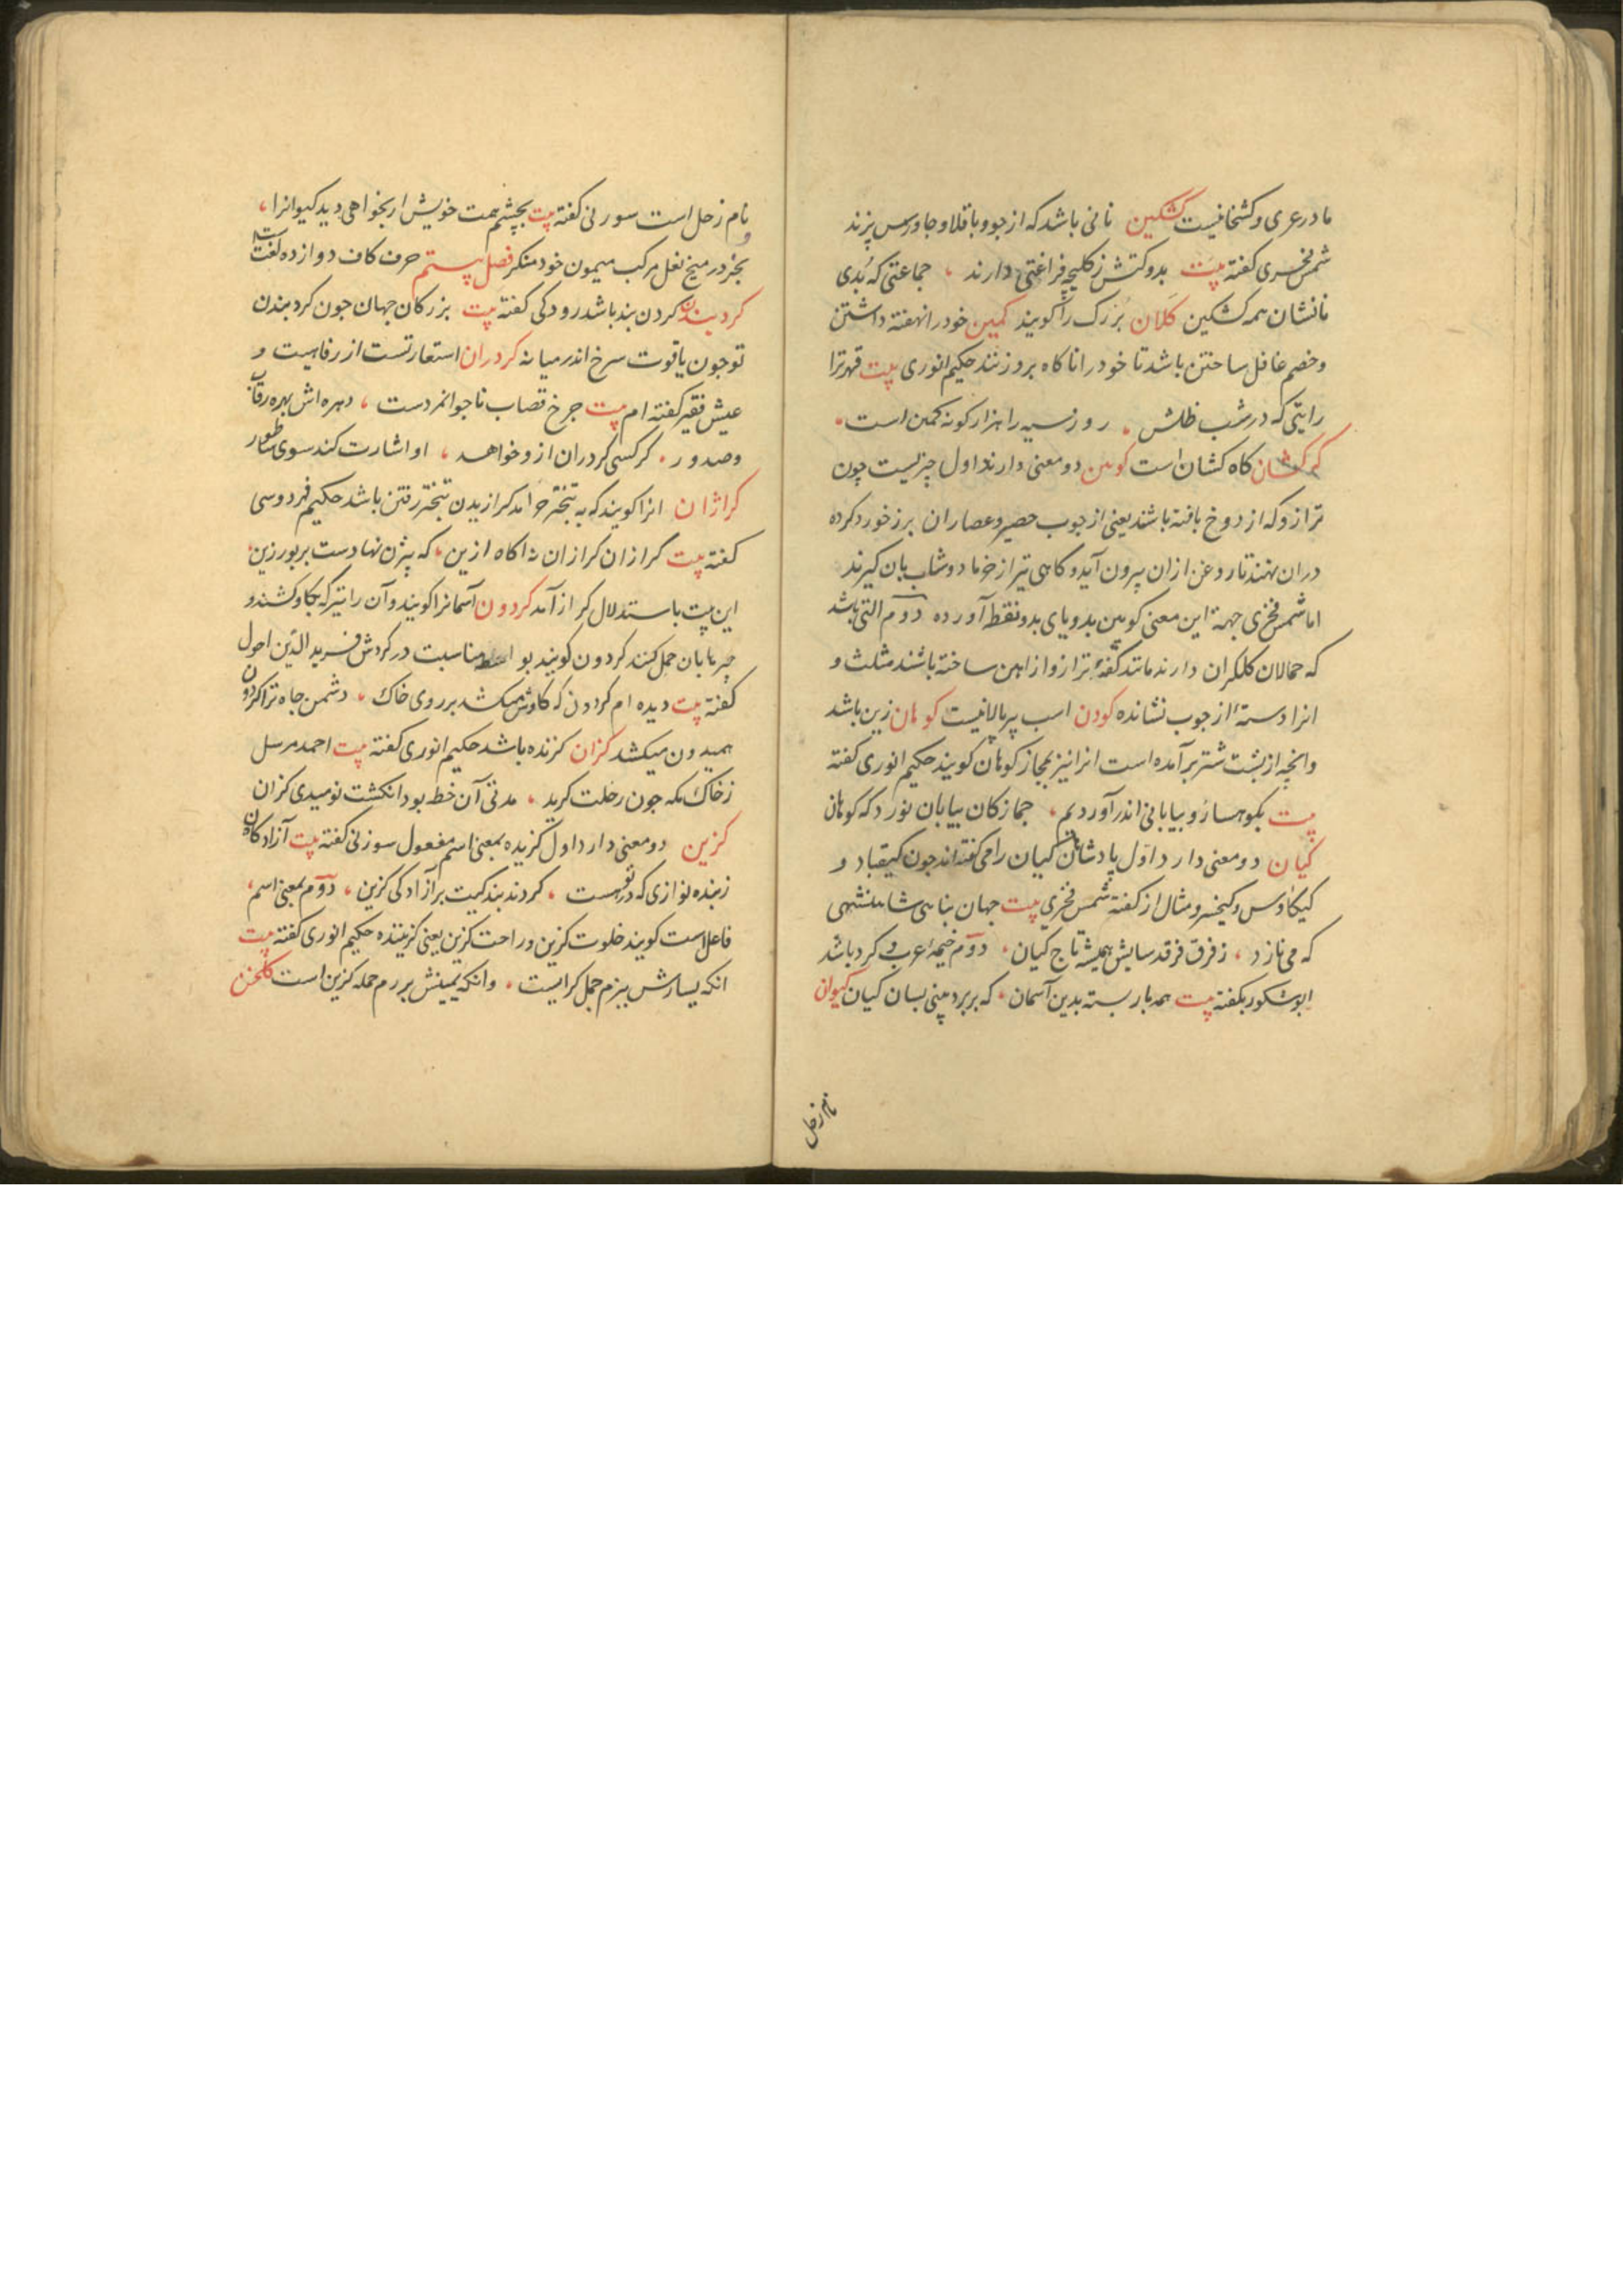 مادرعری و کشخانیست کشکین نانی باشد که از جو و باقلا و جاورس پزند
شمس فخری کفته بیت بدو کتش ز کلیچه فراغتی دارند جماعتی که بُدی
نانشان همه کشکین کلان بزرک را کویند کمین خود را نهفته داشتن
و خصم غافل ساختن باشد تا خود را ناکاه برو زنند حکیم انوری بیت قهر ترا
رایتی که در شب ظلش روز سیه را هزار کونه کمین است
کرکشان کاه کشان است کوین دو معنی دارند اول چیزیست چون
ترازو که از دوخ بافته باشند یعنی از چوب حصیر و عصاران برز خورد کرده
دران نهند تا روغن ازان بیرون آید و کاهی نیز از خرما دوشاب بان کیرند
اما شمس فخری جهة این معنی کوین بدو یای بدو نقطه آورده دوم التی باشد
که حمالان کلکران دارند مانند کفهٔ ترازو از اهن ساخته باشند مثلث و
انرا دستهٔ از جوب نشانده کودن اسب پیر پالانیست کوهان زین باشد
وانچه از پشت شتر برآمده است انرا نیز بمجاز کوهان کویند حکیم انوری کفته
بیت بکوهسار و بیابانی اندر آوردیم جمازکان بیابان نورد که کوهان
کیان دو معنی دارد اول پادشاهان کیان را می کفته اند جون کیقباد و
کیکاوس و کیخسرو مثال از کفتهٔ شمس فخری بیت جهان پناهی شاهنشهی
که می نازد ز فرق فرقد سایش همیشه تاج کیان دوم خیمهٔ عرب و کرد باشد
ابوشکور بکفته بیت همه باز بسته بدین آسمان که بر برده بینی بسان کیان کیوان
نام زحل
نام زحل است سوزنی کفته بیت بچشم همت خویش ار بخواهی دید کیوانرا
بجز در میخ نعل مرکب میمون خود منکر فصل بیستم حرف کاف دوازده لغت
کردبندن کردن بند باشد رودکی کفته بیت بزرکان جهان جون کرد بندن
تو جون یاقوت سرخ اندر میانه کردران استعارتست از رفاهیت و
عیش فقیر کفته ام بیت جرخ قصاب ناجوانمردست دهره اش بهر رقاب
و صدور کر کسی کردران ازو خواهد او اشارت کند سوی ساطور
کرازان انرا کویند که به تبختر خرامد کرازیدن تبختر رفتن باشد حکیم فردوسی
کفته بیت کرازان کرازان نه اکاه ازین که بیژن نهادست بر بور زین
این بیت باستدلال کراز آمد کردون آسمانرا کویند و آن را نیز که بکاو کشند و
چیزها بان حمل کنند کردون کویند بواسطه مناسبت در کردش فرید الدین احول
کفته بیت دیده ام کردون که کاوش میکشد بر روی خاک دشمن جاه ترا کردون
همیدون میکشد کزان کزنده باشد حکیم انوری کفته بیت احمد مرسل
ز خاک مکه جون رحلت کزید مدتی آن خط بود انکشت نومیدی کزان
کزین دو معنی دارد اول کزیده بمعنی اسم مفعول سوزنی کفته بیت آزادکان
ز بنده نوازی که در تو هست کردند بندکیت بر آزادکی کزین دوم بمعنی اسم
فاعل است کویند خلوت کزین و راحت کزین یعنی کزیننده حکیم انوری کفته بیت
انکه یسارش ببزم حمل کرایست وانکه یمینش برزم حمله کزین است کلخن